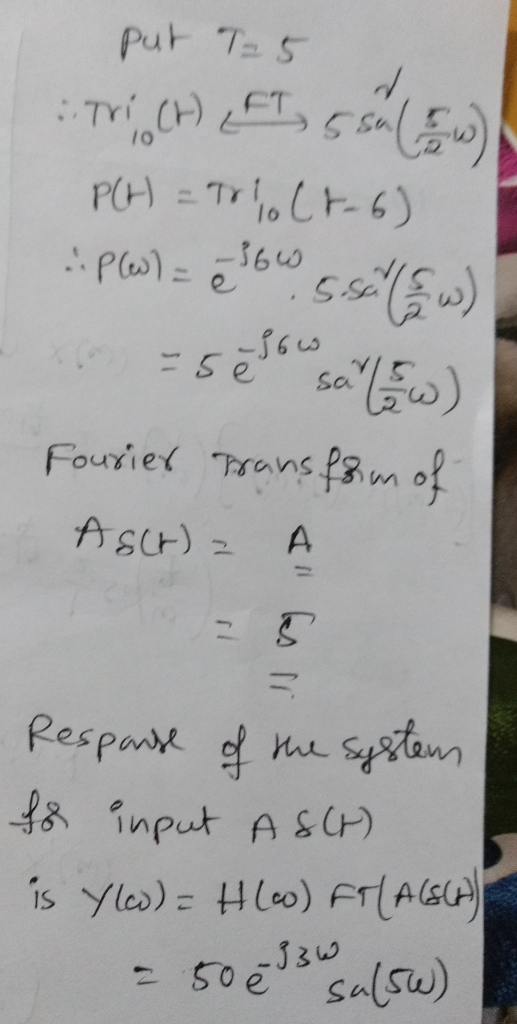 Put T = 5
∴ Tri₁₀(t) ⟷FT 5 sa²(5/2 ω)
P(t) = Tri₁₀(t-6)
∴ P(ω) = e^-j6ω . 5.sa²(5/2 ω)
= 5 e^-j6ω sa²(5/2 ω)
Fourier Transform of
A δ(t) = A
= 5
Response of the system
for input A δ(t)
is Y(ω) = H(ω) FT(A(δ(t))
= 50 e^-j3ω sa(5ω)